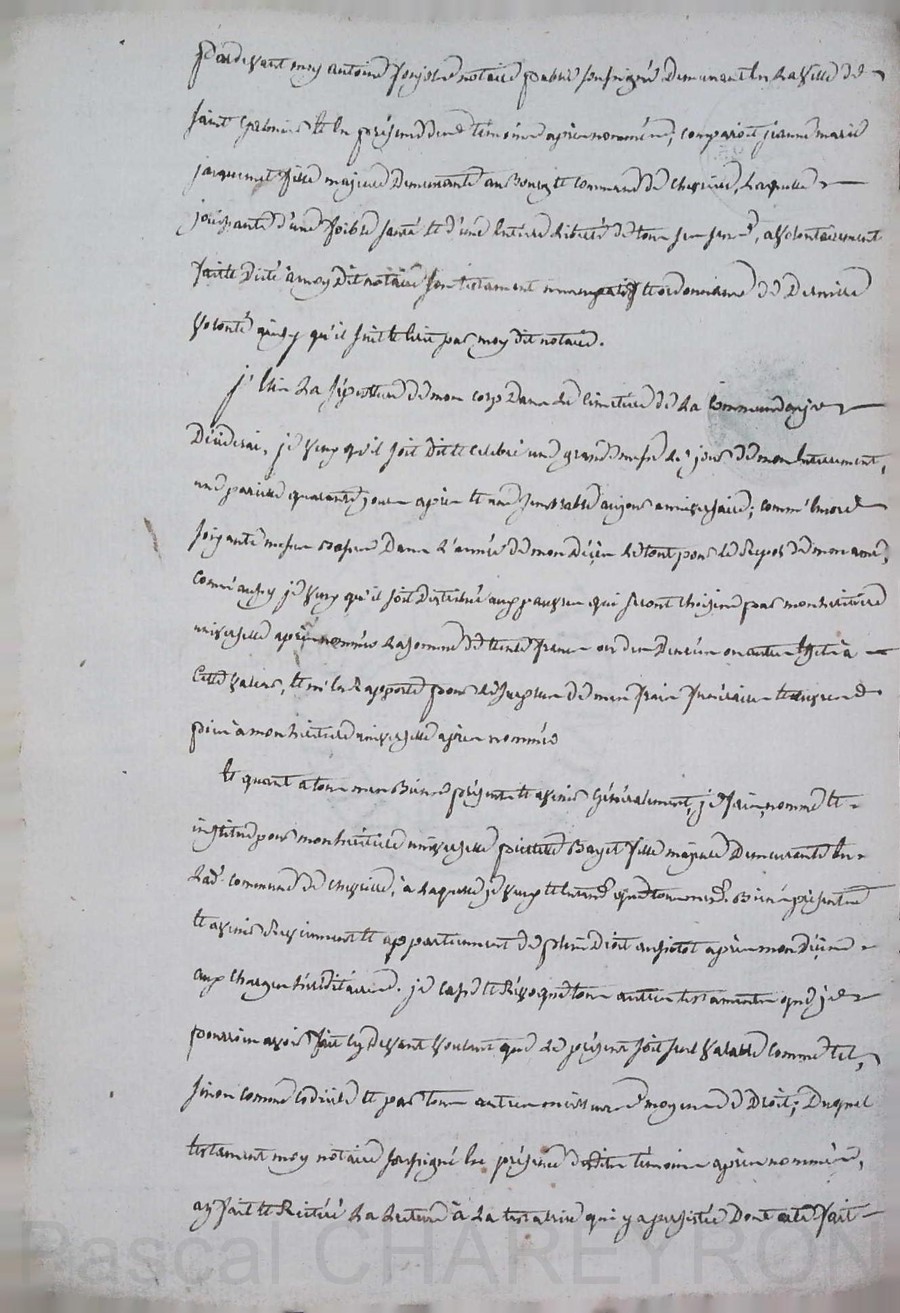 Pardevant moy antoine notaire public soussigné Demeurant en la Ville de
saint et en présence des témoins après nommés, comparoit jeanne marie
jacquemet fille majeure Demeurante au Bourg et commune de Chevrier, Laquelle
jouissante d'une foible santé et d'une entiere liberté de tous ses sens, a volontairement
fait et Dicté à moy Dit notaire son testament nuncupatif et ordonnance de Derniere
volonté ainsy qu'il suit et écrit par moy dit notaire.
j'élis La sépulture de mon corp Dans Le cimetiere de La Commune ou je
Déciderai, je veux qu'il soit dit et celebré une grande messe Le jour de mon enterrement,
une pareille quarante jours après et une semblable au jour anniversaire; comme encore
soixante messes basses Dans L'année de mon Décès Le tout pour Le Repos de mon ame,
comme aussy je veux qu'il soit Distribué aux pauvres qui seront choisis par mon héritiere
universelle après nommée La somme de trente francs ou des Denrées ou autres effets à
Cette valeur, et m'en Rapporte pour Le surplus de mes frais funéraires et œuvres
pies à mon héritiere universelle après nommée
et quant a tous mes Biens présents et avenir Généralement, je fais, nomme et
institue pour mon héritiere universelle pierrette Bayet fille majeure Demeurante en
Lad. commune de à Laquelle je veux et entend que tous mesd. Biens présents
et avenir Reviennent et appartiennent de plein Droit aussitot après mon Décès
aux charges héréditaires. je casse et Révoque tous autres testaments que je
pourrois avoir fait cy devant voulant que Le présent soit seul valable comme tel,
sinon comme codicile et par tous autres meilleurs moyens de Droit; Duquel
testament moy notaire soussigné en présence desdits témoins après nommés,
ay fait et Réitéré La Lecture à La testatrice qui y a persistée Dont acte fait
Pascal CHAREYRON